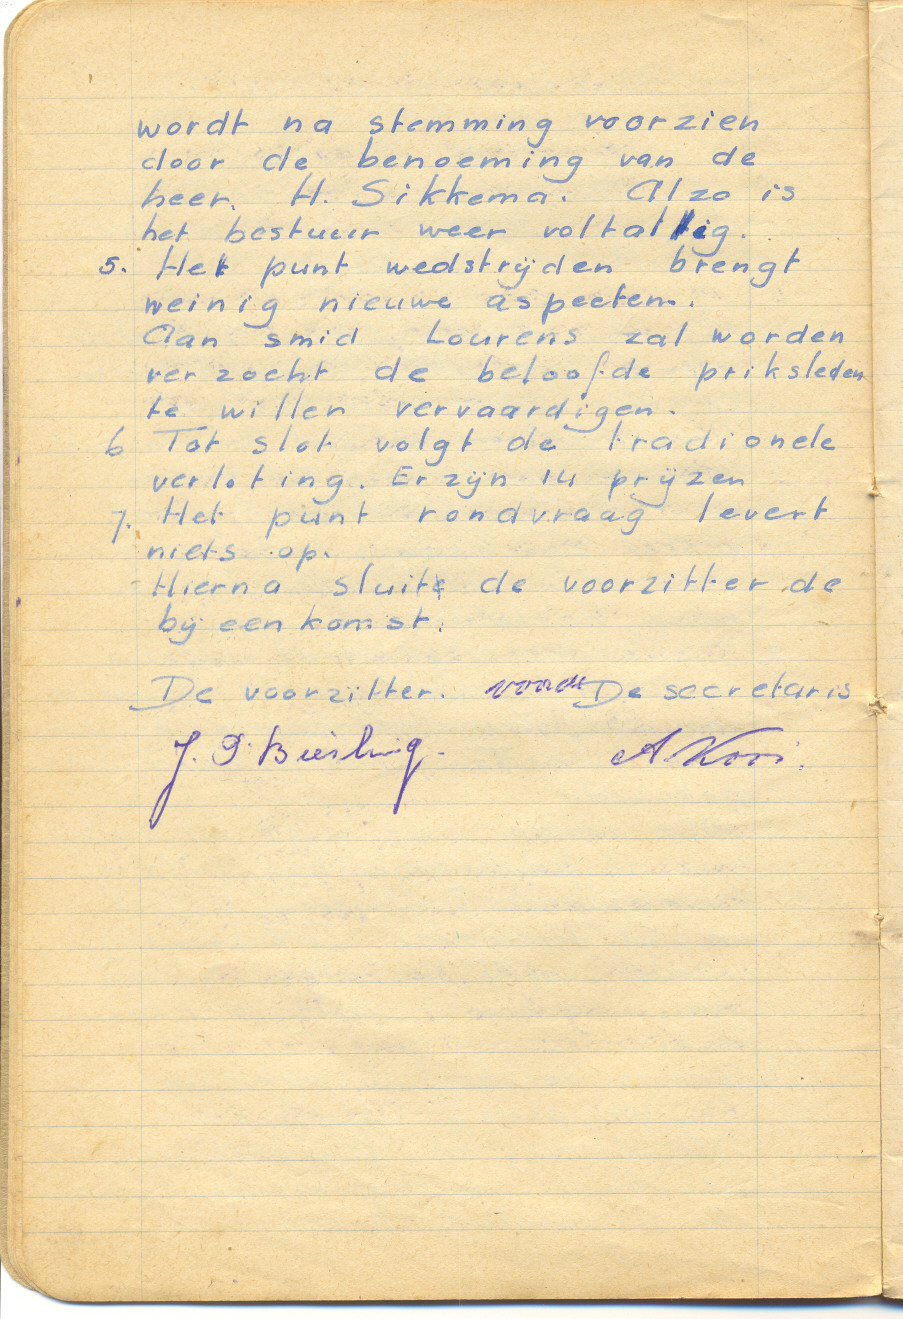 wordt na stemming voorzien
door de benoeming van de
heer. H. Sikkema. Alzo is
het bestuur weer voltallig.
5. Het punt wedstrijden brengt
weinig nieuwe aspecten.
Aan smid Lourens zal worden
verzocht de beloofde priksleden
te willen vervaardigen.
6 Tot slot volgt de tradionele
verloting. Er zijn 14 prijzen
7. Het punt rondvraag levert
niets op.
Hierna sluit de voorzitter de
bijeenkomst.
De voorzitter. De secretaris
J. P. Bierling.
A. Kooi.